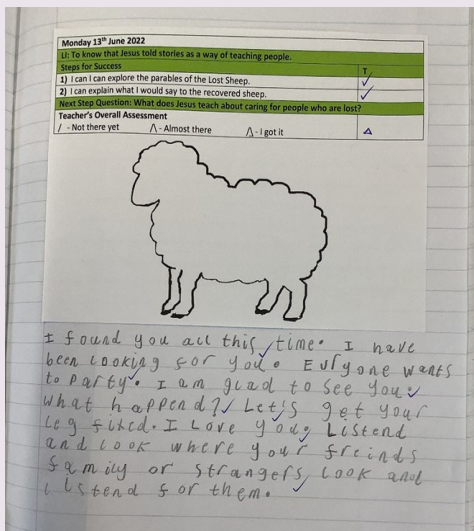 Monday 13th June 2022
LI: To know that Jesus told stories as a way of teaching people.
Steps for Success
T
1) I can I can explore the parables of the Lost Sheep.
2) I can explain what I would say to the recovered sheep.
Next Step Question: What does Jesus teach about caring for people who are lost?
Teacher's Overall Assessment
/ - Not there yet Λ - Almost there Δ - I got it
I found you all this time. I have
been looking for you. Evryone wants
to party. I am glad to see you.
What happend? Let's get your
leg fixed. I Love you. Listend
and look where your freinds
family or strangers, look and
listend for them.